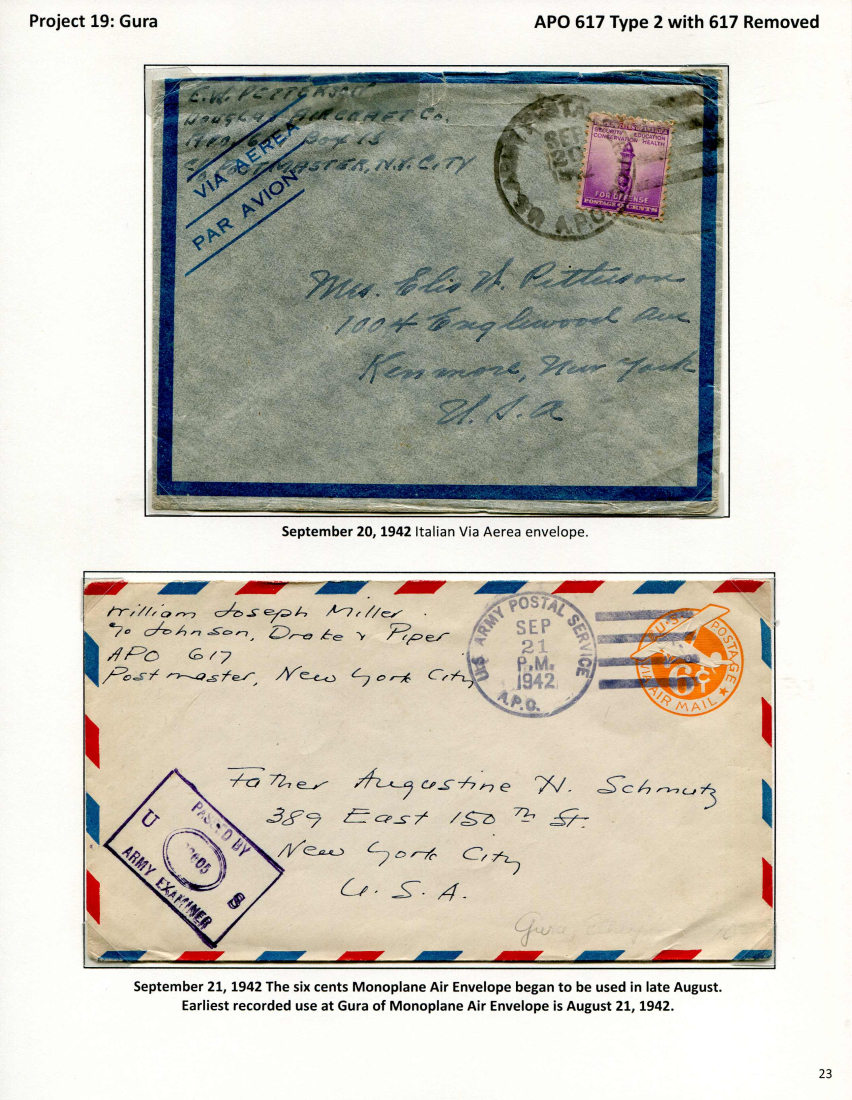 Project 19: Gura
APO 617 Type 2 with 617 Removed
E.W. PETTERSON
DOUGLAS AIRCRAFT Co.
Box 15
C/o POSTMASTER, N.Y. CITY
VIA AEREA
PAR AVION
U.S. ARMY
SEP
20
A.P.O.
SECURITY EDUCATION
CONSERVATION HEALTH
FOR DEFENSE
POSTAGE CENTS
Mrs. Elis W. Pitterson
1004 Englewood Ave
Kenmore, New York
U.S.A
September 20, 1942 Italian Via Aerea envelope.
William Joseph Miller
c/o Johnson, Drake & Piper
APO 617
Postmaster, New York City
U.S. ARMY POSTAL SERVICE
SEP
21
P.M.
1942
A.P.O.
U.S. POSTAGE
6¢
VIA AIR MAIL
Father Augustine H. Schmutz
389 East 150 Th St.
New York City
U. S. A.
PASSED BY
U S
ARMY EXAMINER
Gura,
September 21, 1942 The six cents Monoplane Air Envelope began to be used in late August.
Earliest recorded use at Gura of Monoplane Air Envelope is August 21, 1942.
23